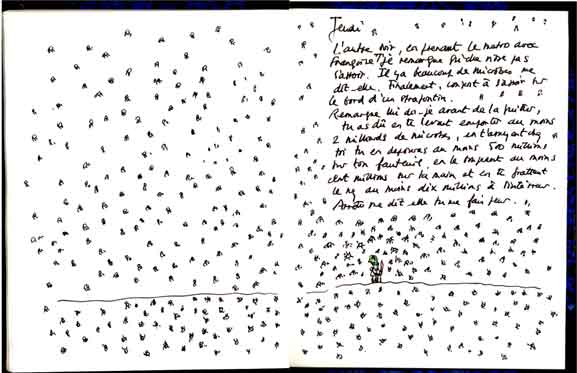 Jeudi
L'autre soir, en prenant le metro avec
Françoise T je remarque qu'elle n'ose pas
s'assoir. Il y a beaucoup de microbes me
dit-elle. Finalement, consent à s'assoir sur
le bord d'un strapontin.
Remarque lui dis-je avant de la quitter,
tu as dû en te levant emporter au moins
2 milliards de microbes, en t'asseyant chez
toi tu en déposeras au moins 500 millions
sur ton fauteuil, en le coupant au moins
cent millions sur ta main et en te frottant
le nez au moins dix millions à l'intérieur.
Arrête me dit elle tu me fais peur.